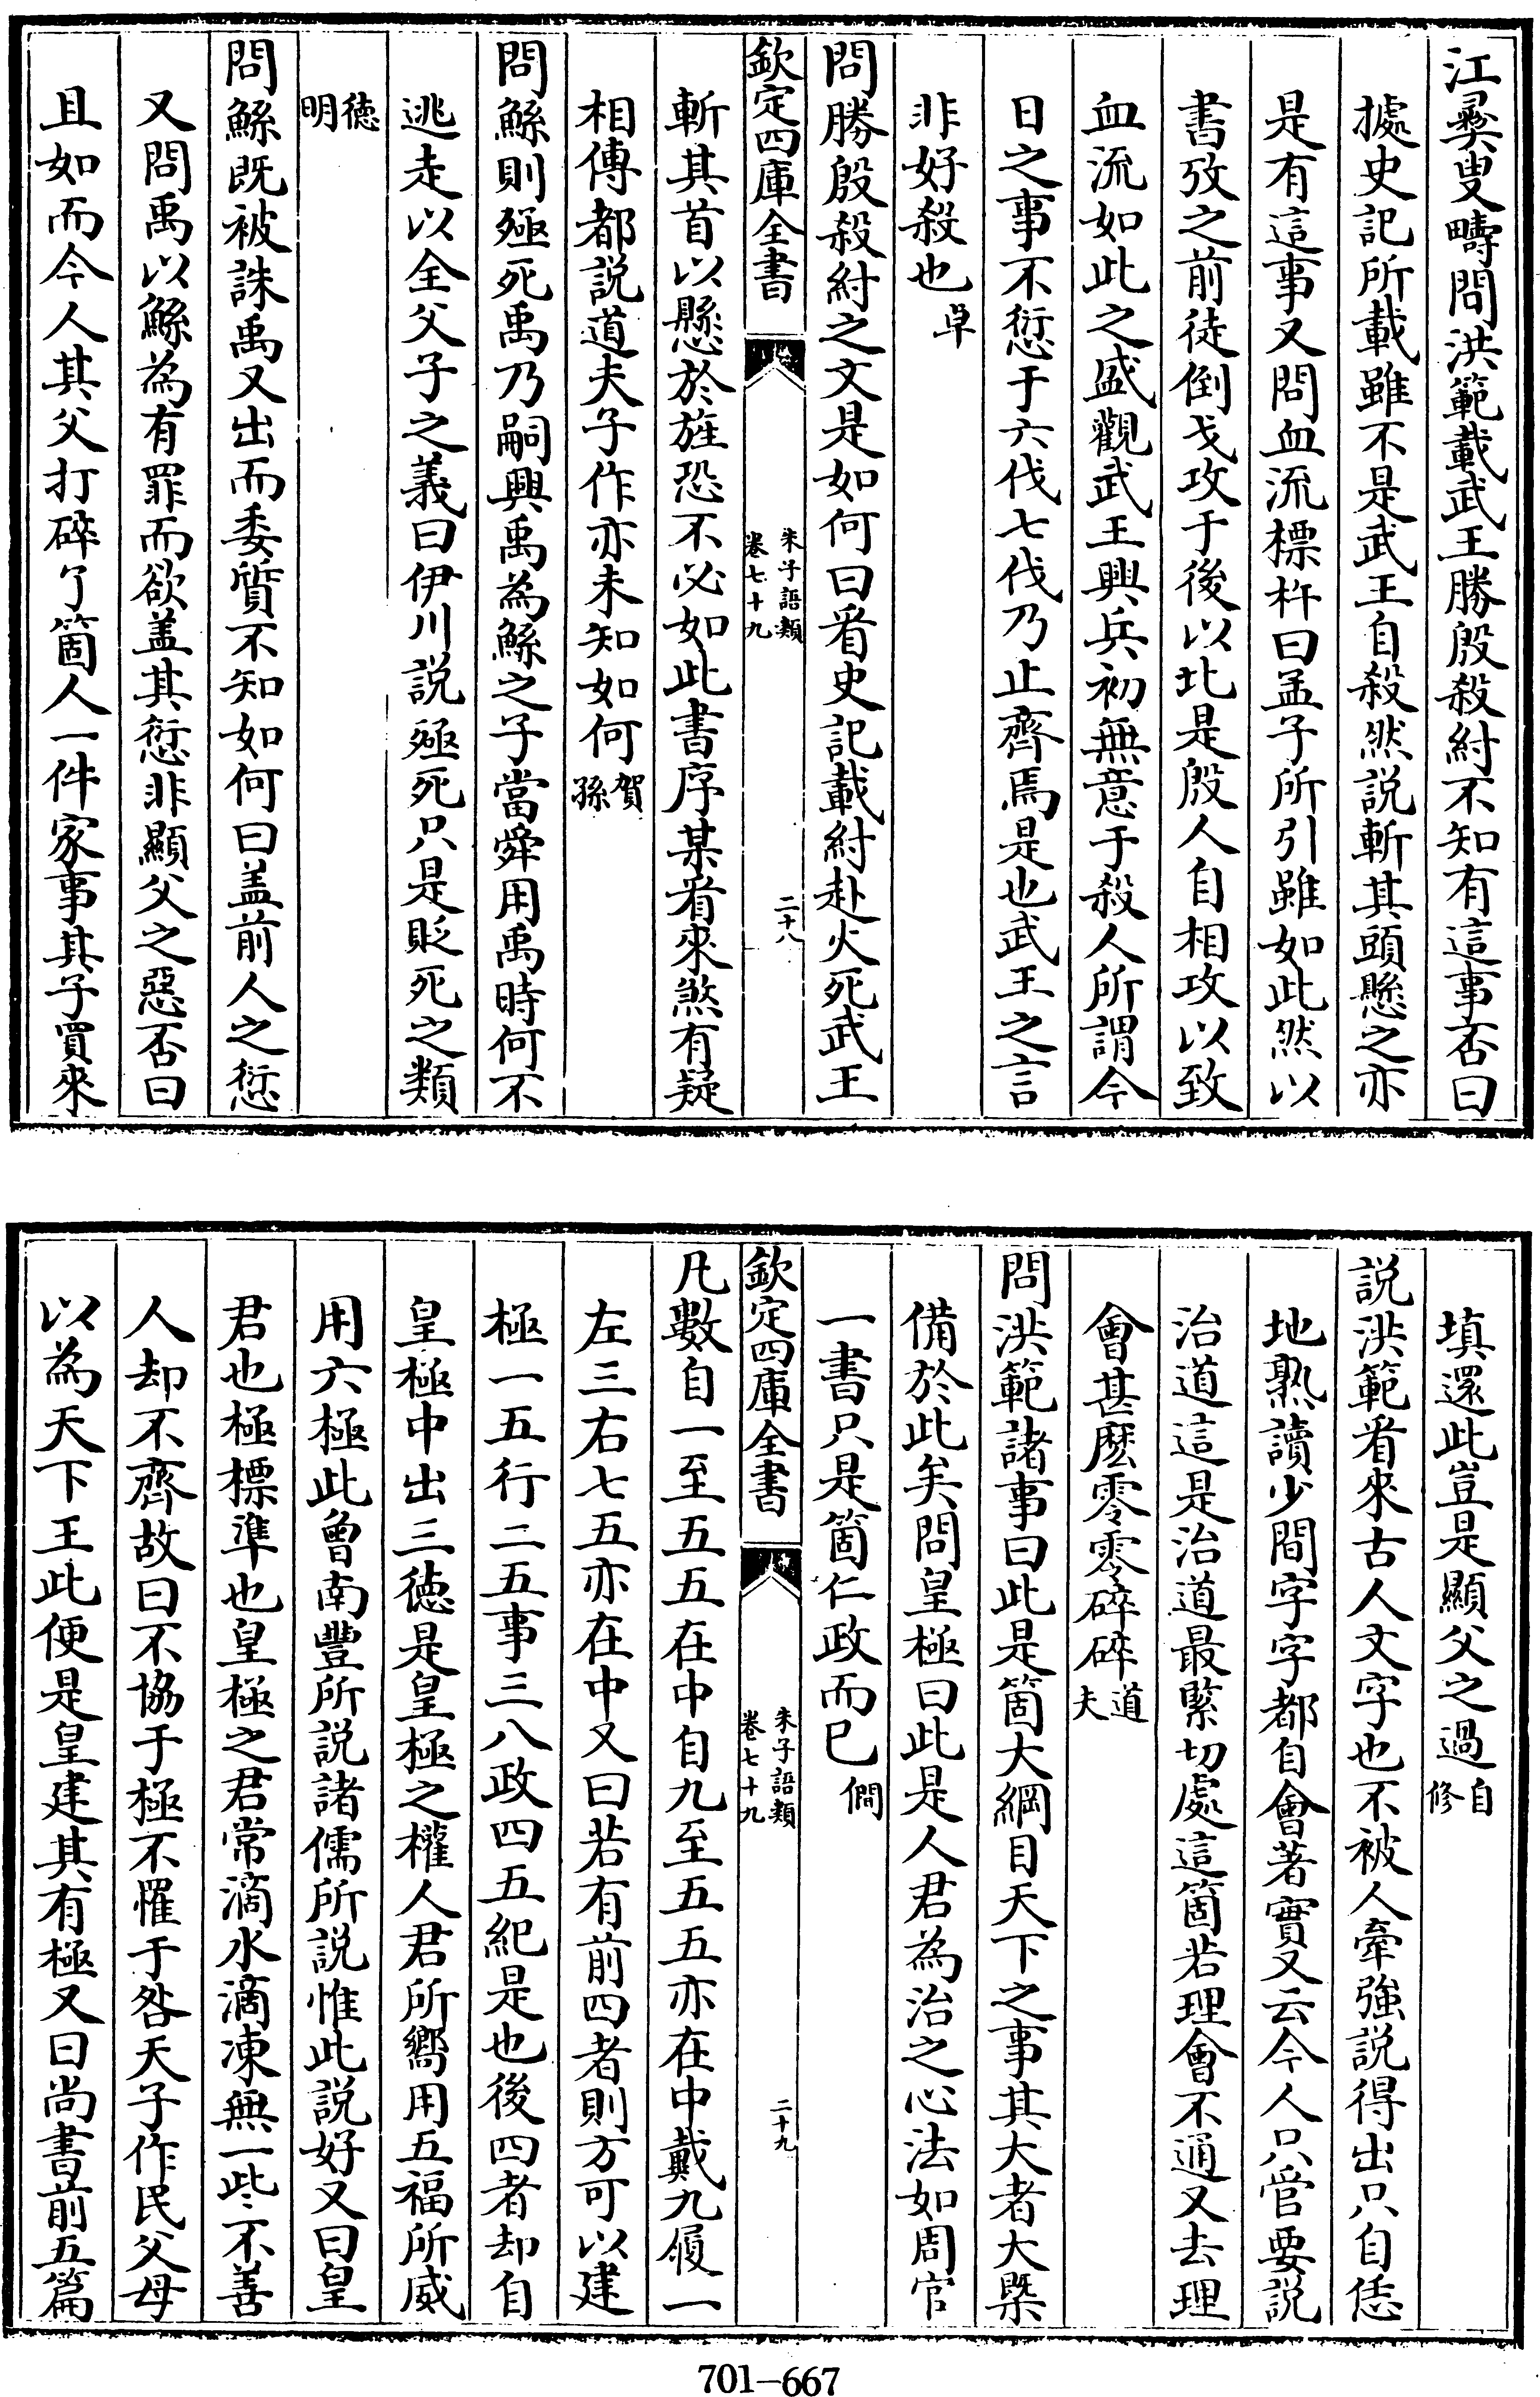 江彝叟疇問洪範載武王勝殷殺紂不知有這事否曰
據史記所載雖不是武王自殺然說斬其頭懸之亦
是有這事又問血流標杵曰孟子所引雖如此然以
書攷之前徒倒戈攻于後以北是殷人自相攻以致
血流如此之盛觀武王興兵初無意于殺人所謂今
日之事不愆于六伐七伐乃止齊焉是也武王之言
非好殺也卓
問勝殷殺紂之文是如何曰看史記載紂赴火死武王
欽定四庫全書 朱子語類 卷七十九 二十八
斬其首以懸於旌恐不必如此書序某看來煞有疑
相傳都說道夫子作亦未知如何賀孫
問鯀則殛死禹乃嗣興禹為鯀之子當舜用禹時何不
逃走以全父子之義曰伊川說殛死只是貶死之類
德明
問鯀既被誅禹又出而委質不知如何曰盖前人之愆
又問禹以鯀為有罪而欲盖其愆非顯父之惡否曰
且如而今人其父打碎了箇人一件家事其子買來
填還此豈是顯父之過自修
說洪範看來古人文字也不被人牽強說得出只自恁
地熟讀少間字字都自會著實又云今人只管要說
治道這是治道最緊切處這箇若理會不通又去理
會甚麽零零碎碎道夫
問洪範諸事曰此是箇大綱目天下之事其大者大槩
備於此矣問皇極曰此是人君為治之心法如周官
一書只是箇仁政而已僩
欽定四庫全書 朱子語類 卷七十九 二十九
凡數自一至五五在中自九至五五亦在中戴九履一
左三右七五亦在中又曰若有前四者則方可以建
極一五行二五事三八政四五紀是也後四者却自
皇極中出三德是皇極之權人君所嚮用五福所威
用六極此曾南豐所說諸儒所說惟此說好又曰皇
君也極標準也皇極之君常滴水滴凍無一些不善
人却不齊故曰不協于極不罹于咎天子作民父母
以為天下王此便是皇建其有極又曰尚書前五篇
701—667